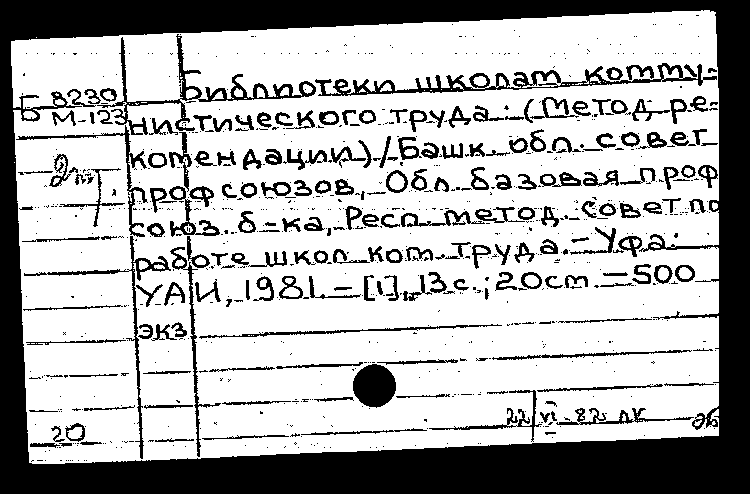 Б 8230
М-123
Библиотеки школам комму-
нистического труда: (Метод. ре-
комендации) / Башк. обл. совет
профсоюзов, Обл. базовая проф
союз. б-ка, Респ. метод. совет по
работе школ ком. труда. – Уфа:
УАИ, 1981. – [1], 13 с.; 20 см – 500
экз
20
22 VI-82